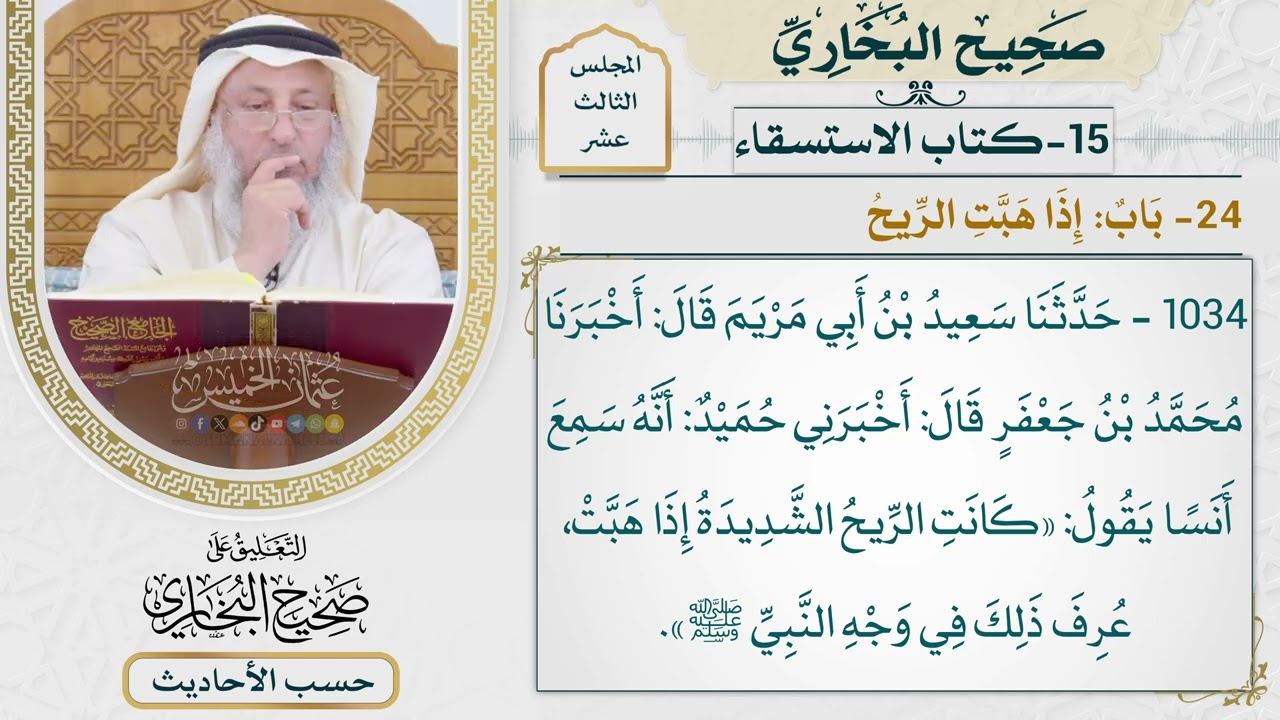 صَحِيحُ البُخَارِيِّ
15-كتاب الاستسقاء
المجلس
الثالث
عشر
24- بَابٌ: إِذَا هَبَّتِ الرِّيحُ
1034 - حَدَّثَنَا سَعِيدُ بْنُ أَبِي مَرْيَمَ قَالَ: أَخْبَرَنَا
مُحَمَّدُ بْنُ جَعْفَرٍ قَالَ: أَخْبَرَنِي حُمَيْدٌ: أَنَّهُ سَمِعَ
أَنَسًا يَقُولُ: «كَانَتِ الرِّيحُ الشَّدِيدَةُ إِذَا هَبَّتْ،
عُرِفَ ذَلِكَ فِي وَجْهِ النَّبِيِّ ﷺ».
الجامع الصحيح
عثمان الخميس
التَّعْلِيقُ عَلَى
صَحِيحِ البُخَارِي
حسب الأحاديث